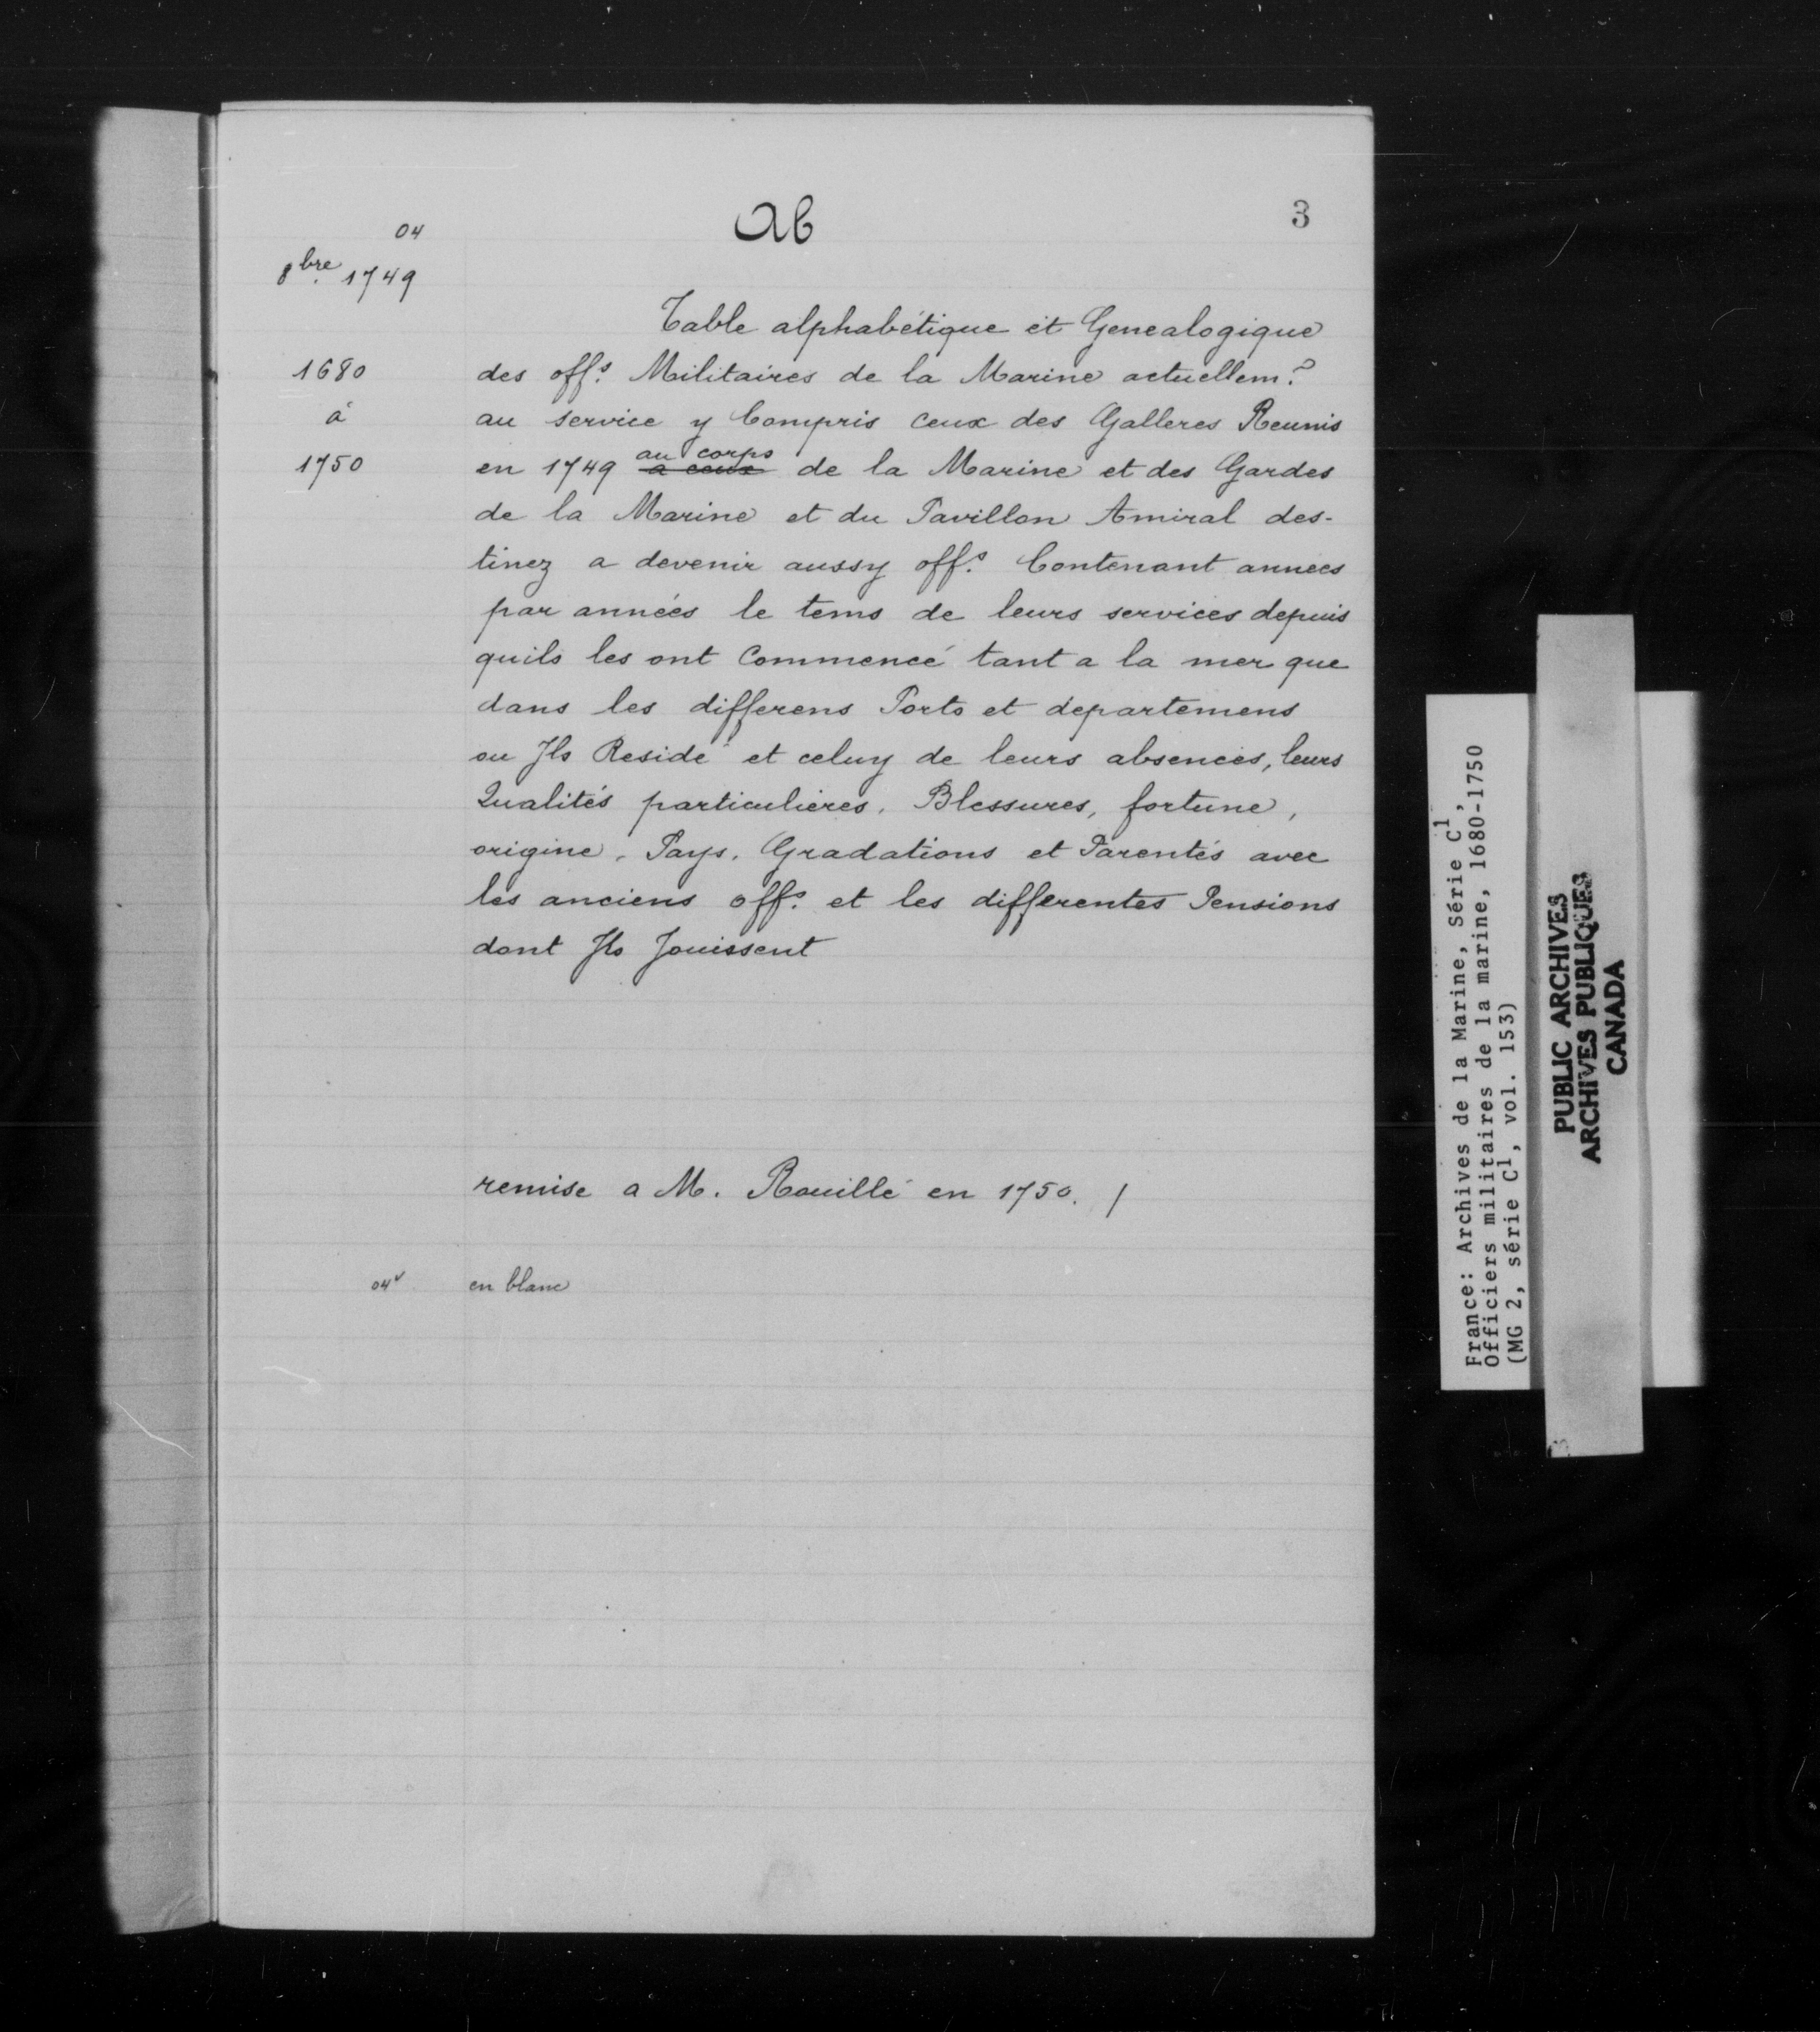 Ab
3
04
8bre. 1749
Table alphabétique et Genealogique
1680 des offs. Militaires de la Marine actuellemt.
à au service y Compris ceux des Galleres Reunis
au corps
1750 en 1749 a ceux de la Marine et des Gardes
de la Marine et du Pavillon Amiral des-
tinez a devenir aussy offs. Contenant annees
par années le tems de leurs services depuis
quils les ont Commencé tant a la mer que
dans les differens Ports et departemens
ou Jls Reside et celuy de leurs absences, leurs
Qualités particulieres. Blessures, fortune,
origine. Pays. Gradations et Parentés avec
les anciens offs. et les differentes Pensions
dont Jls Jouissent
remise a M. Rouillé en 1750. /
04v en blanc
France: Archives de la Marine, Série C1,
Officiers militaires de la marine, 1680-1750
(MG 2, série C1, vol. 153)
PUBLIC ARCHIVES
ARCHIVES PUBLIQUES
CANADA